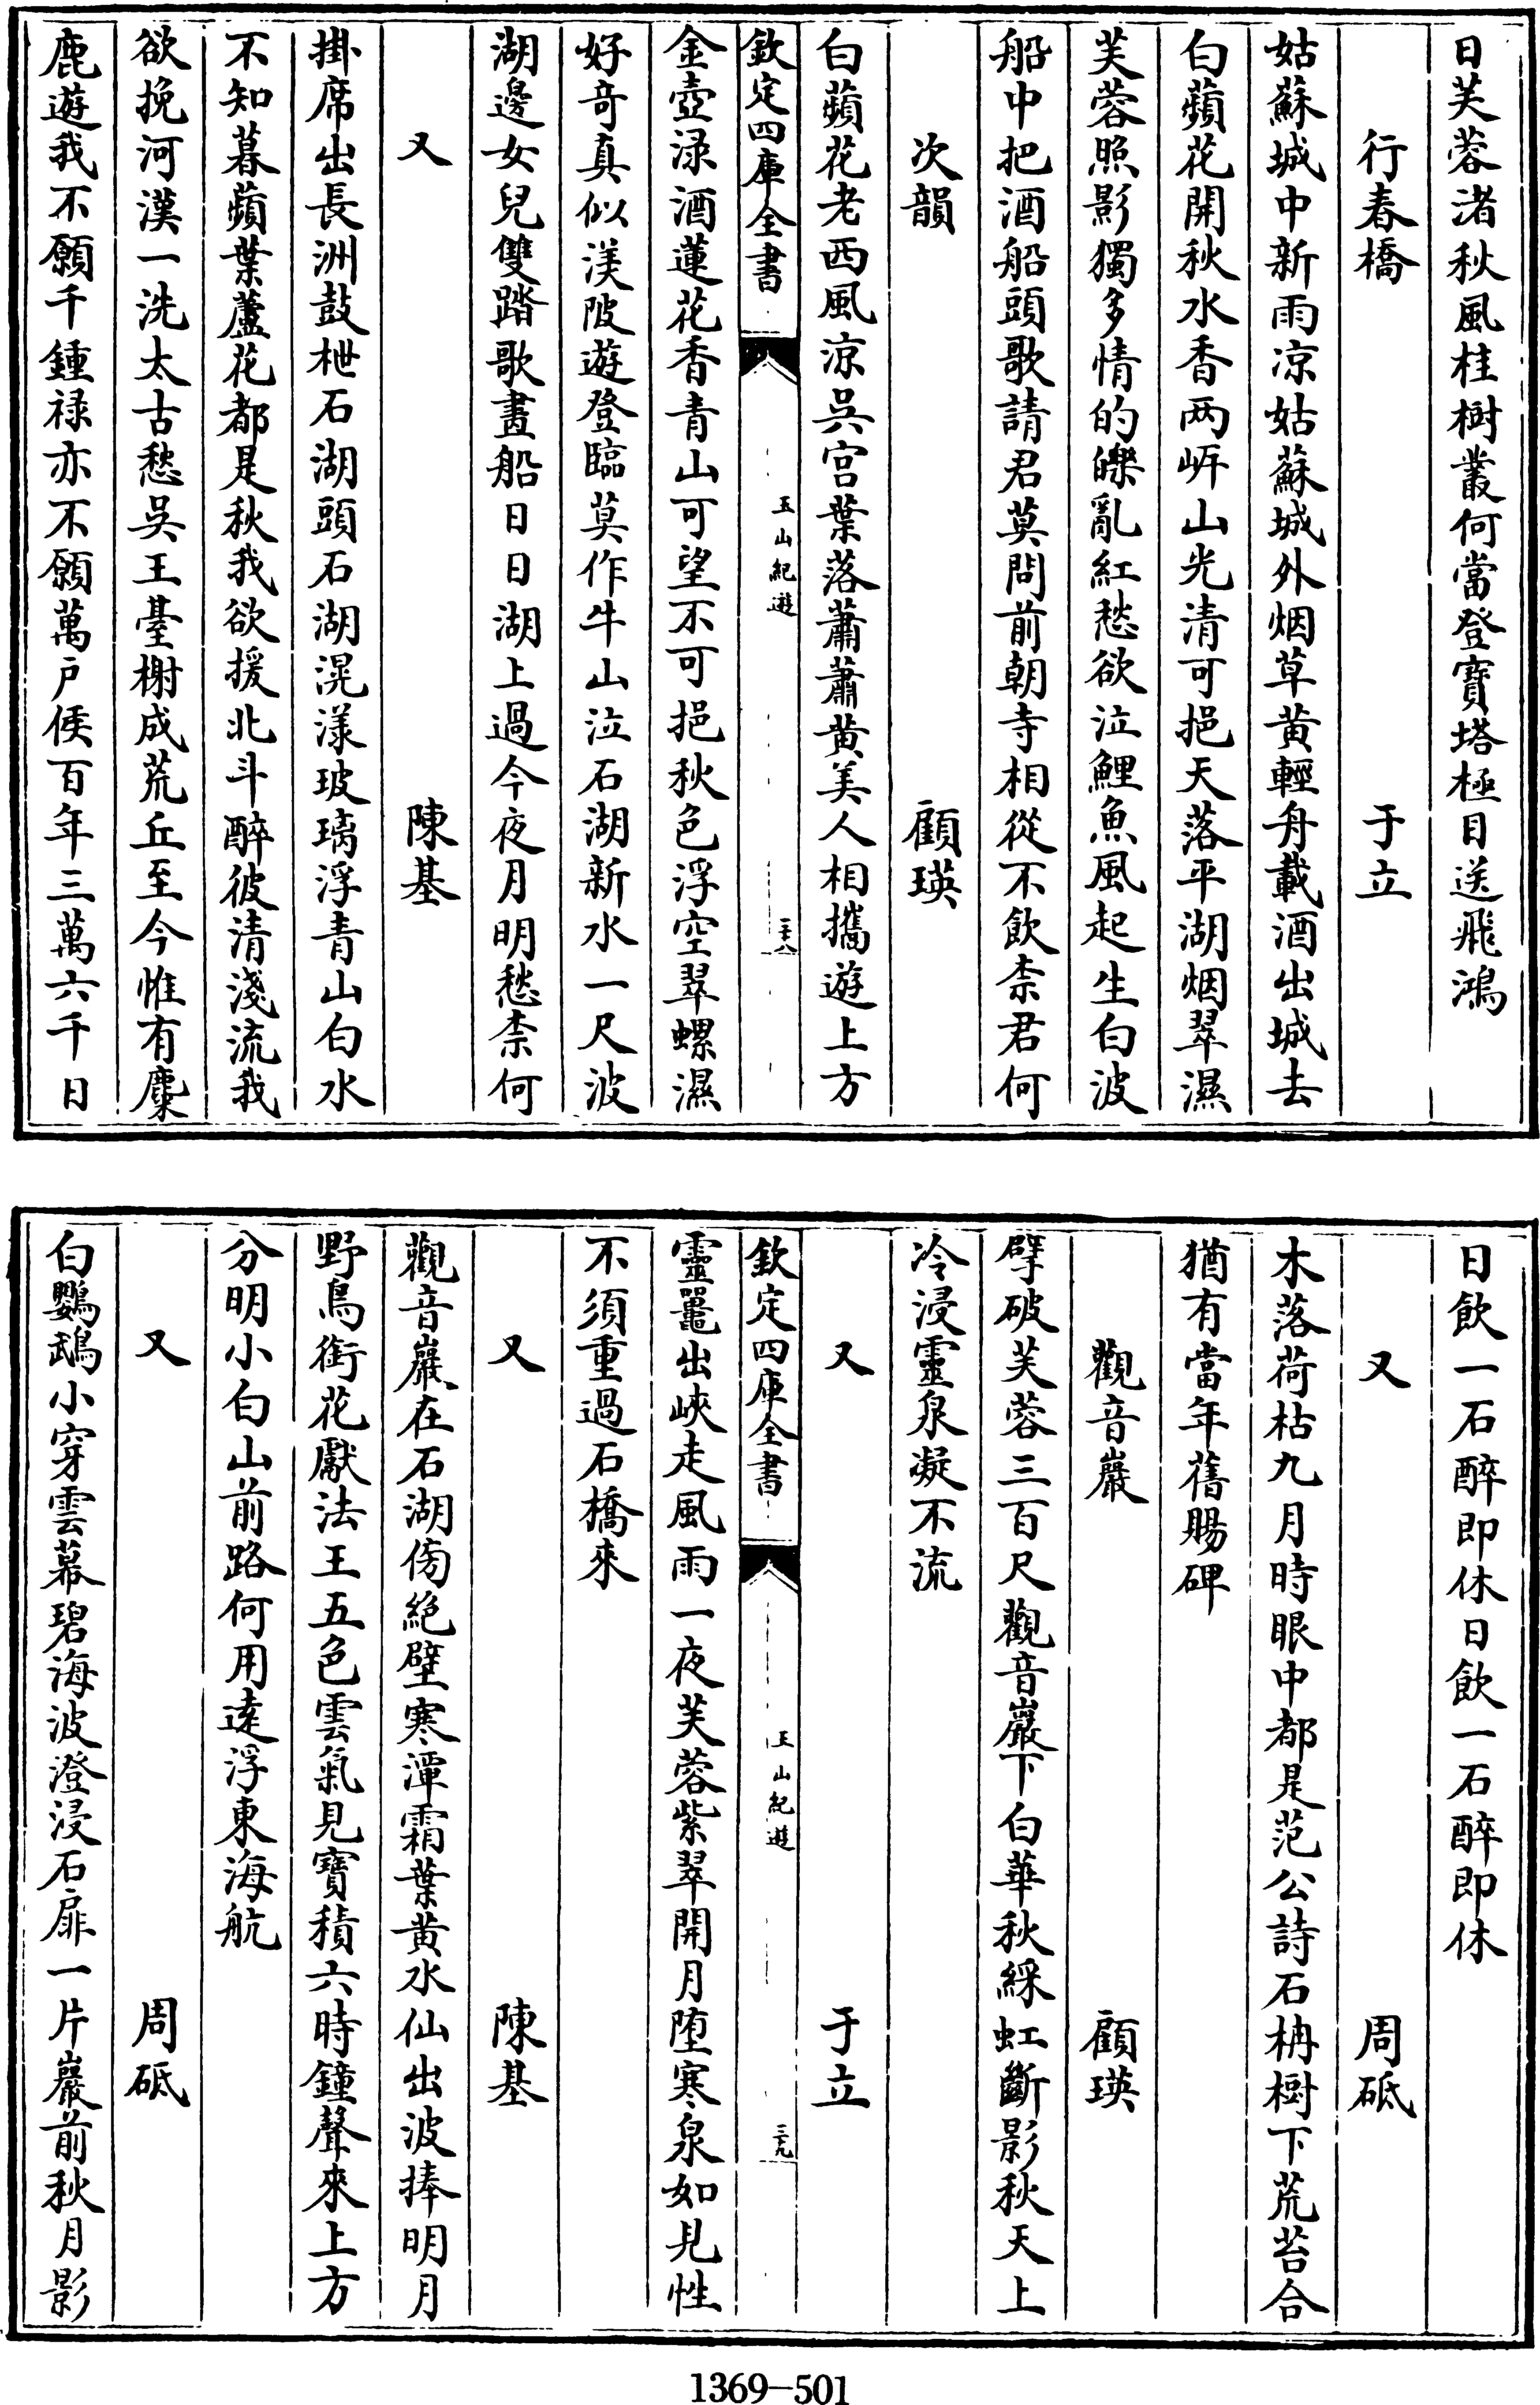 日芙蓉渚秋風桂樹叢何當登寶塔極目送飛鴻
行春橋 于立
姑蘇城中新雨凉姑蘇城外烟草黄輕舟載酒出城去
白蘋花開秋水香两岍山光清可挹天落平湖烟翠濕
芙蓉照影獨多情的皪亂紅愁欲泣鯉魚風起生白波
船中把酒船頭歌請君莫問前朝寺相從不飲柰君何
次韻 顧瑛
白蘋花老西風凉吳宫葉落蕭蕭黄美人相攜遊上方
欽定四庫全書 玉山紀遊 三十八
金壺渌酒蓮花香青山可望不可挹秋色浮空翠螺濕
好竒真似渼陂遊登臨莫作牛山泣石湖新水一尺波
湖邊女兒雙踏歌畫船日日湖上過今夜月明愁柰何
又 陳基
掛席出長洲鼓枻石湖頭石湖滉漾玻璃浮青山白水
不知暮蘋葉蘆花都是秋我欲援北斗醉彼清淺流我
欲挽河漢一洗太古愁吳王臺榭成荒丘至今惟有麋
鹿遊我不願千鍾禄亦不願萬户侯百年三萬六千日
日飲一石醉即休日飲一石醉即休
又 周砥
木落荷枯九月時眼中都是范公詩石枏樹下荒苔合
猶有當年舊賜碑
觀音巖 顧瑛
擘破芙蓉三百尺觀音巖下白華秋綵虹斷影秋天上
冷浸靈泉凝不流
又 于立
欽定四庫全書 玉山紀遊 三十九
靈鼉出峽走風雨一夜芙蓉紫翠開月堕寒泉如見性
不須重過石橋來
又 陳基
觀音巖在石湖傍絶壁寒潭霜葉黄水仙出波捧明月
野鳥銜花獻法王五色雲氣見寶積六時鐘聲來上方
分明小白山前路何用逺浮東海航
又 周砥
白鸚鵡小穿雲幕碧海波澄浸石扉一片巖前秋月影
1369-501